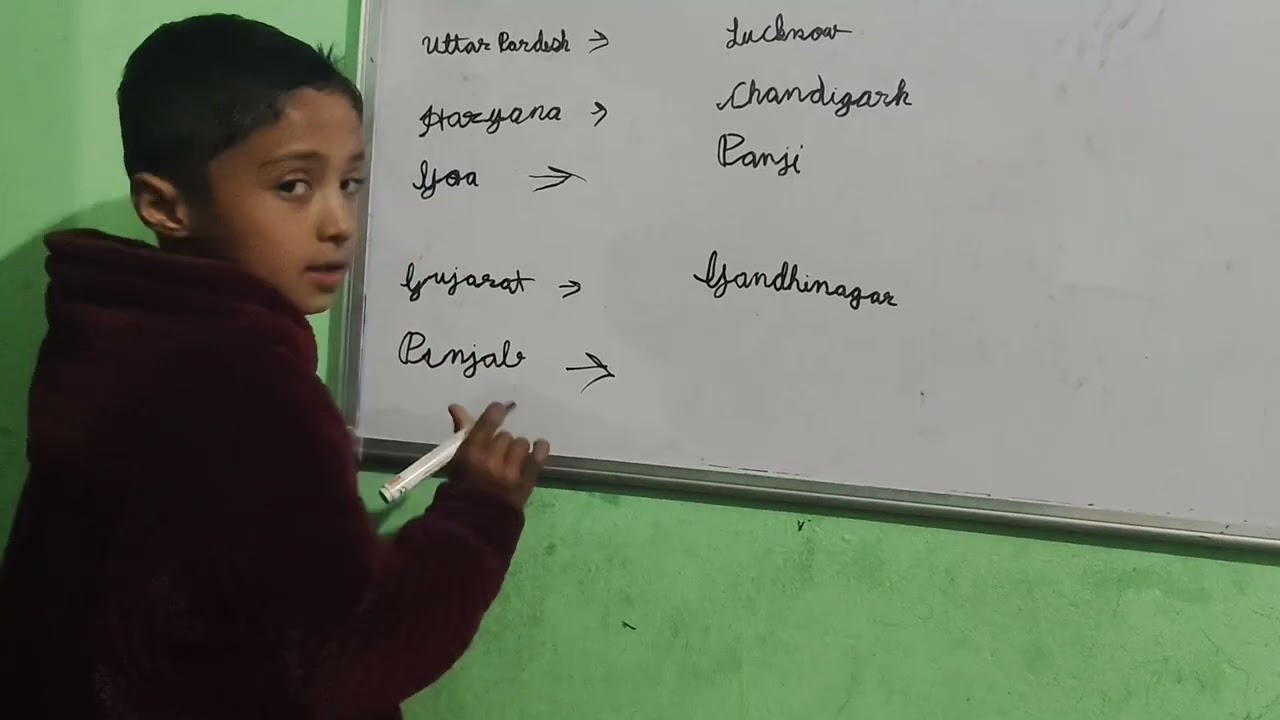 Uttar Pardesh → Lucknow
Haryana → Chandigarh
Goa → Panji
Gujarat → Gandhinagar
Punjab →